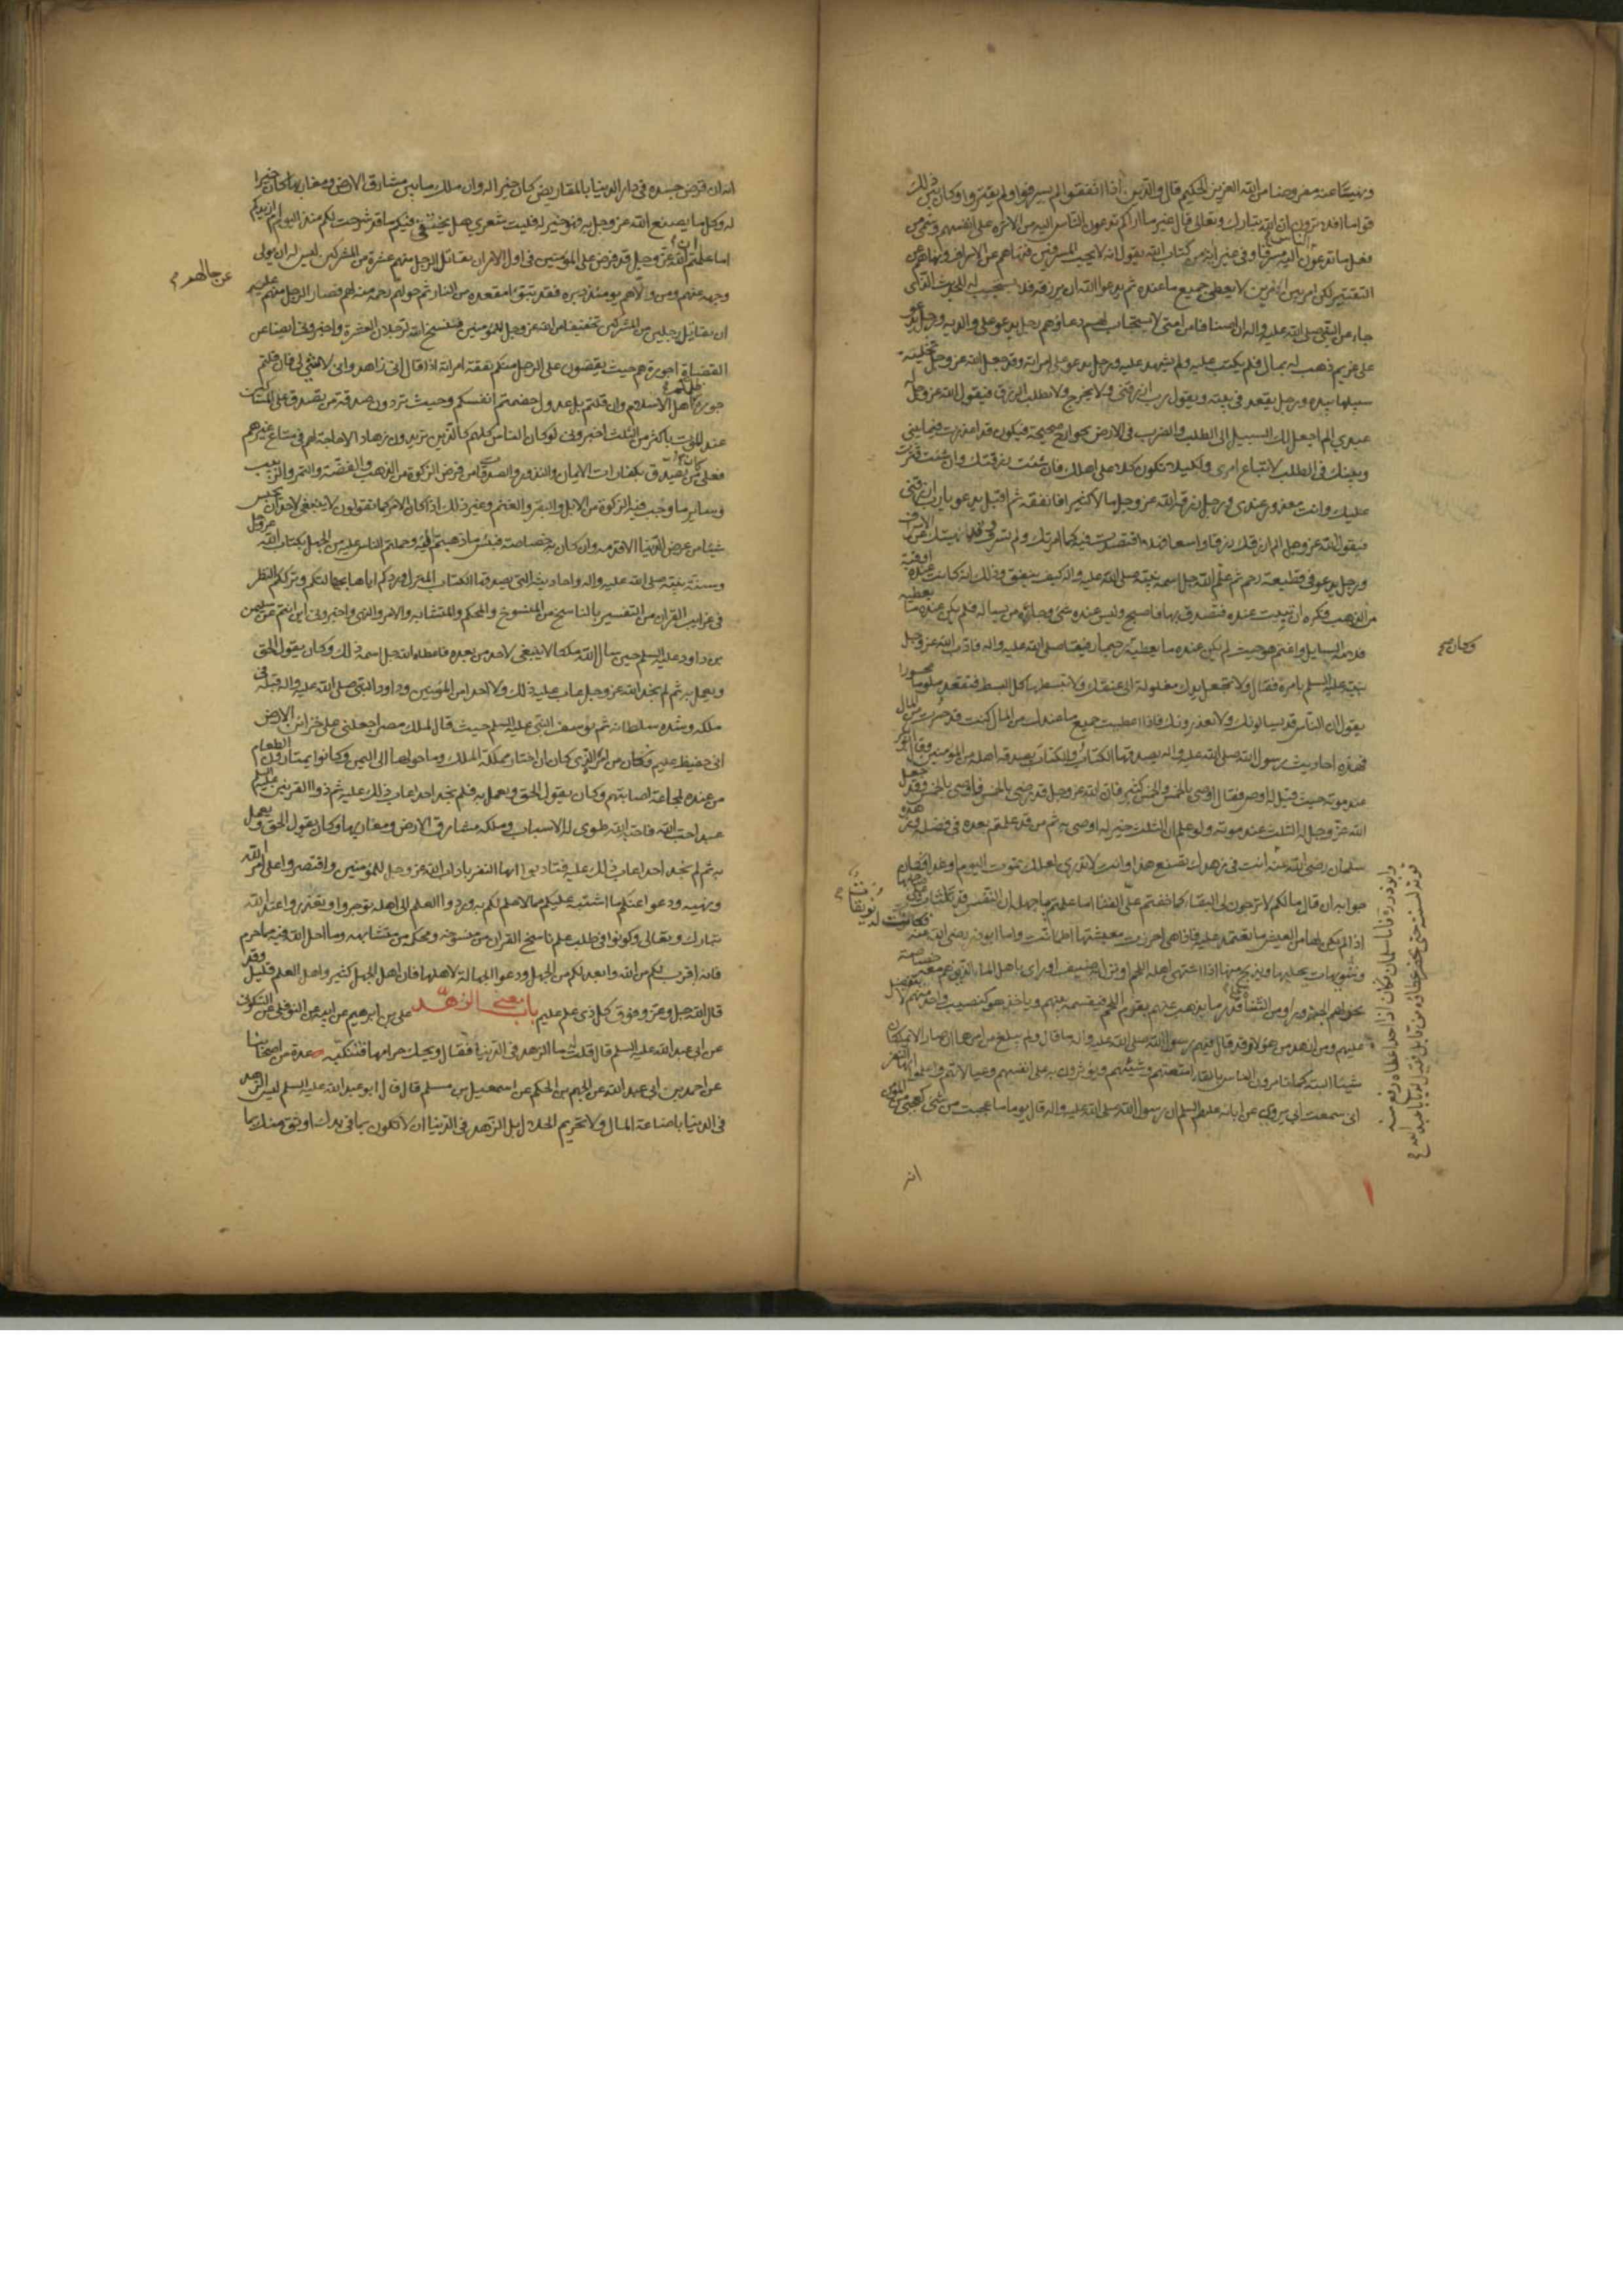 ونهيتنا عنه مفروضا من الله العزيز الحكيم قال والذين اذا انفقوا لم يسرفوا ولم يقتروا وكان بين ذلك
قواما افلا ترون ان الله تبارك وتعالى قال غير ما اراكم تدعون الناس اليه من الاثرة على انفسهم وسمى من
فعل ما تدعون الناس اليه مسرفا وفى غير اية من كتاب الله يقول انه لا يحب المسرفين فنهاهم عن الاسراف ونهاهم عن
التقتير لكن امر بين امرين لا يعطى جميع ما عنده ثم يدعو الله ان يرزقه فلا يستجيب له للحديث الذى
جاء عن النبى صلى الله عليه واله ان اصنافا من امتى لا يستجاب لهم دعاؤهم رجل يدعو على والديه ورجل يدعو
على غريم ذهب له بمال فلم يكتب عليه ولم يشهد عليه ورجل يدعو على امراته وقد جعل الله عز وجل تخلية
سبيلها بيده ورجل يقعد فى بيته ويقول رب ارزقنى ولا يخرج ولا يطلب الرزق فيقول الله عز وجل له
عبدى الم اجعل لك السبيل الى الطلب والضرب فى الارض بجوارح صحيحة فتكون قد اعذرت فيما بينى
وبينك فى الطلب لاتباع امرى ولكيلا تكون كلا على اهلك فان شئت رزقتك وان شئت قترت
عليك وانت معذور عندى ورجل رزقه الله عز وجل مالا كثيرا فانفقه ثم اقبل يدعو يا رب ارزقنى
فيقول الله عز وجل الم ارزقك رزقا واسعا فهلا اقتصدت فيه كما امرتك ولم تسرف وقد نهيتك عن الاسراف
ورجل يدعو فى قطيعة رحم ثم علم الله جل اسمه نبيه صلى الله عليه واله كيف ينفق وذلك انه كانت عنده اوقية
من الذهب فكره ان تبيت عنده فتصدق بها فاصبح وليس عنده شئ وجاءه من يساله فلم يكن عنده ما يعطيه
فلامه السايل واغتم هو حيث لم يكن عنده ما يعطيه رحيما رفيقا صلى الله عليه واله فادب الله عز وجل
وكان صح
نبيه عليه السلم بامره فقال ولا تجعل يدك مغلولة الى عنقك ولا تبسطها كل البسط فتقعد ملوما محسورا
يقول ان الناس قد يسالونك ولا يعذرونك فاذا اعطيت جميع ما عندك من المال كنت قد حسرت من المال
فهذه احاديث رسول الله صلى الله عليه واله يصدقها الكتاب والكتاب يصدقه اهله من المؤمنين وقال ابو بكر
عند موته حيث قيل له اوص فقال اوصى بالخمس والخمس كثير فان الله عز وجل قد رضى بالخمس فاوصى بالخمس وقد جعل
الله عز وجل له الثلث عند موته ولو علم ان الثلث خير له اوصى به ثم من قد علمتم بعده فى فضله وزهده
سلمان رضى الله عنه انت فى زهدك تصنع هذا وانت لا تدرى لعلك تموت اليوم او غدا فكان
جوابه ان قال ما لكم لا ترجون لى البقاء كما خفتم على الفناء اما علمتم يا جهلة ان النفس قد تلتاث على صاحبها
اذا لم يكن لها من العيش ما تعتمد عليه فاذا هى احرزت معيشتها اطمانت واما ابو ذر رضى الله عنه فكانت له نويقات
وشويهات يحلبها ويذبح منها اذا اشتهى اهله اللحم او نزل به ضيف او راى باهل الماء الذين هم معه خصاصة
نحر لهم الجزور او من الشاء قدر ما يذهب عنهم بقرم اللحم فيقسمه بينهم وياخذ هو كنصيب واحد منهم لا يتفضل
عليهم ومن ازهد من هؤلاء وقد قال فيهم رسول الله صلى الله عليه واله ما قال ولم يبلغ من امرهما ان صارا لا يملكان
شيئا البتة كما تامرون الناس بالقاء امتعتهم وشيئهم ويؤثرون به على انفسهم وعيالاتهم واعلموا ايها النفر
انى سمعت ابى يروى عن ابائه عليهم السلم ان رسول الله صلى الله عليه واله قال يوما ما عجبت من شئ كعجبى من المؤمن
وابو ذر رة فاما سلمان فكان اذا اخذ اعطاه رفع منه
قوته لسنته حتى يحضر عطاؤه من قابل فقيل له يا با عبد الله
انه
انه ان قرض جسده فى دار الدنيا بالمقاريض كان خيرا له وان ملك ما بين مشارق الارض ومغاربها كان خيرا
له وكل ما يصنع الله عز وجل به فهو خير له فليت شعرى هل يحيق فيكم ما قد شرحت لكم منذ اليوم ام ازيدكم
اما علمتم ان الله عز وجل قد فرض على المؤمنين فى اول الامر ان يقاتل الرجل منهم عشرة من المشركين ليس له ان يولى
وجهه عنهم ومن ولاهم يومئذ دبره فقد تبوء مقعده من النار ثم حولهم رحمة منه لهم فصار الرجل منهم عليه
عن حالهم
ان يقاتل رجلين من المشركين تخفيفا من الله عز وجل للمؤمنين فنسخ الرجلان العشرة واخبرونى ايضا عن
القضاة اجورة هم حيث يقضون على الرجل منكم نفقة امراته اذا قال انى زاهد وانى لا شئ لى فان قلتم
جورة ظلمكم اهل الاسلام وان قلتم بل عدول خصمتم انفسكم وحيث تردون صدقة من تصدق على المساكين
عند الموت باكثر من الثلث اخبرونى لو كان الناس كلهم كالذين تريدون زهادا لا حاجة لهم فى متاع غيرهم
فعلى من كان يصدق بكفارات الايمان والنذور والصدقات من فرض الزكوة من الذهب والفضة والتمر والزبيب
وساير ما وجب فيه الزكوة من الابل والبقر والغنم وغير ذلك اذا كان الامر كما تقولون لا ينبغى لاحد ان يحبس
شيئا من عرض الدنيا الا قدمه وان كان به خصاصة فبئس ما ذهبتم اليه وحملتم الناس عليه من الجهل بكتاب الله عز وجل
وسنة نبيه صلى الله عليه واله واحاديثه التى يصدقها الكتاب المنزل وردكم اياها بجهالتكم وترككم النظر
فى غرايب القران من التفسير بالناسخ من المنسوخ والمحكم والمتشابه والامر والنهى واخبرونى اين انتم عن سليمن
بن داود عليه السلم حين سال الله ملكا لا ينبغى لاحد من بعده فاعطاه الله جل اسمه ذلك وكان يقول الحق
ويعمل به ثم لم نجد الله عز وجل عاب عليه ذلك ولا احدا من المؤمنين وداود النبى صلى الله عليه واله قبله فى
ملكه وشدة سلطانه ثم يوسف النبى عليه السلم حيث قال لملك مصر اجعلنى على خزائن الارض
انى حفيظ عليم فكان من امره الذى كان ان اختار مملكة الملك وما حولها الى اليمن وكانوا يمتارون الطعام
من عنده لمجاعة اصابتهم وكان يقول الحق ويعمل به فلم نجد احدا عاب ذلك عليه ثم ذو القرنين عليه السلم
عبد احب الله فاحبه الله طوى له الاسباب وملكه مشارق الارض ومغاربها وكان يقول الحق ويعمل
به ثم لم نجد احدا عاب ذلك عليه فتادبوا ايها النفر باداب الله عز وجل للمؤمنين واقتصروا على امر الله
ونهيه ودعوا عنكم ما اشتبه عليكم مما لا علم لكم به وردوا العلم الى اهله توجروا وتعذروا عند الله
تبارك وتعالى وكونوا فى طلب علم ناسخ القران من منسوخه ومحكمه من متشابهه وما احل الله فيه مما حرم
فانه اقرب لكم من الله وابعد لكم من الجهل ودعوا الجهالة لاهلها فان اهل الجهل كثير واهل العلم قليل وقد
قال الله جل وعز وفوق كل ذى علم عليم باب معنى الزهد على بن ابرهيم عن ابيه عن النوفلى عن السكونى
عن ابى عبد الله عليه السلم قال قلت له ما الزهد فى الدنيا فقال ويحك حرامها فتنكبه عدة من اصحابنا
عن احمد بن ابى عبد الله عن الجهم بن الحكم عن اسمعيل بن مسلم قال قال ابو عبد الله عليه السلم ليس الزهد
فى الدنيا باضاعة المال ولا تحريم الحلال بل الزهد فى الدنيا ان لا تكون بما فى يدك اوثق منك بما